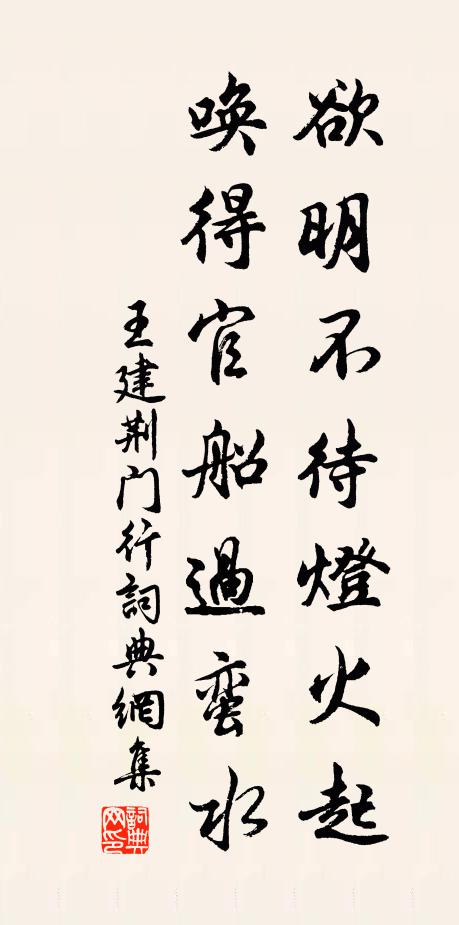 欲明不待燈火起
唤得官船過蛮水
王建荆门行詞典網集
詞典网印